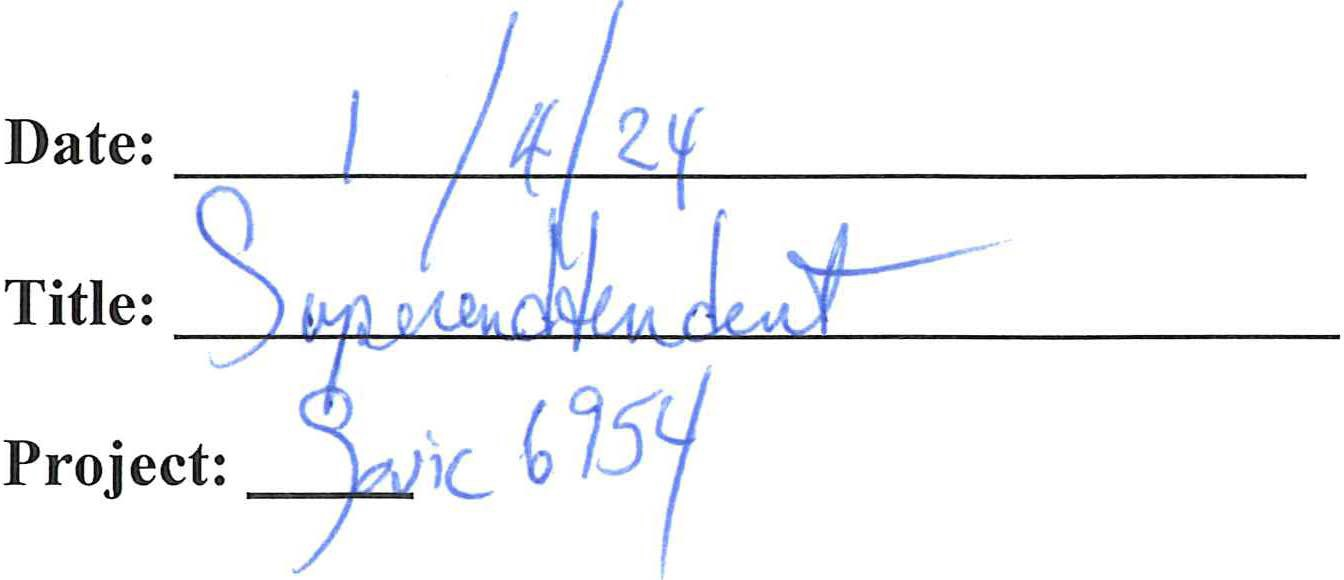 Date: 1/4/24
Title: Superendtendent
Project: Savic 6954